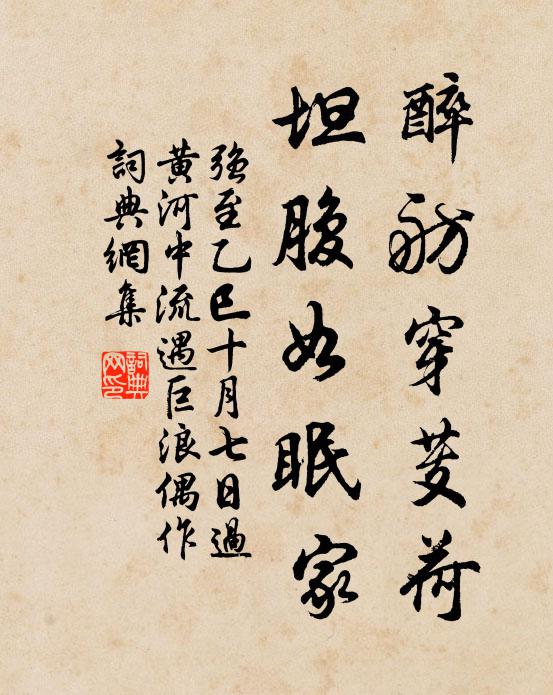 醉舫穿芰荷
坦腹如眠家
強至乙巳十月七日過
黃河中流遇巨浪偶作
詞典網集
詞典网印